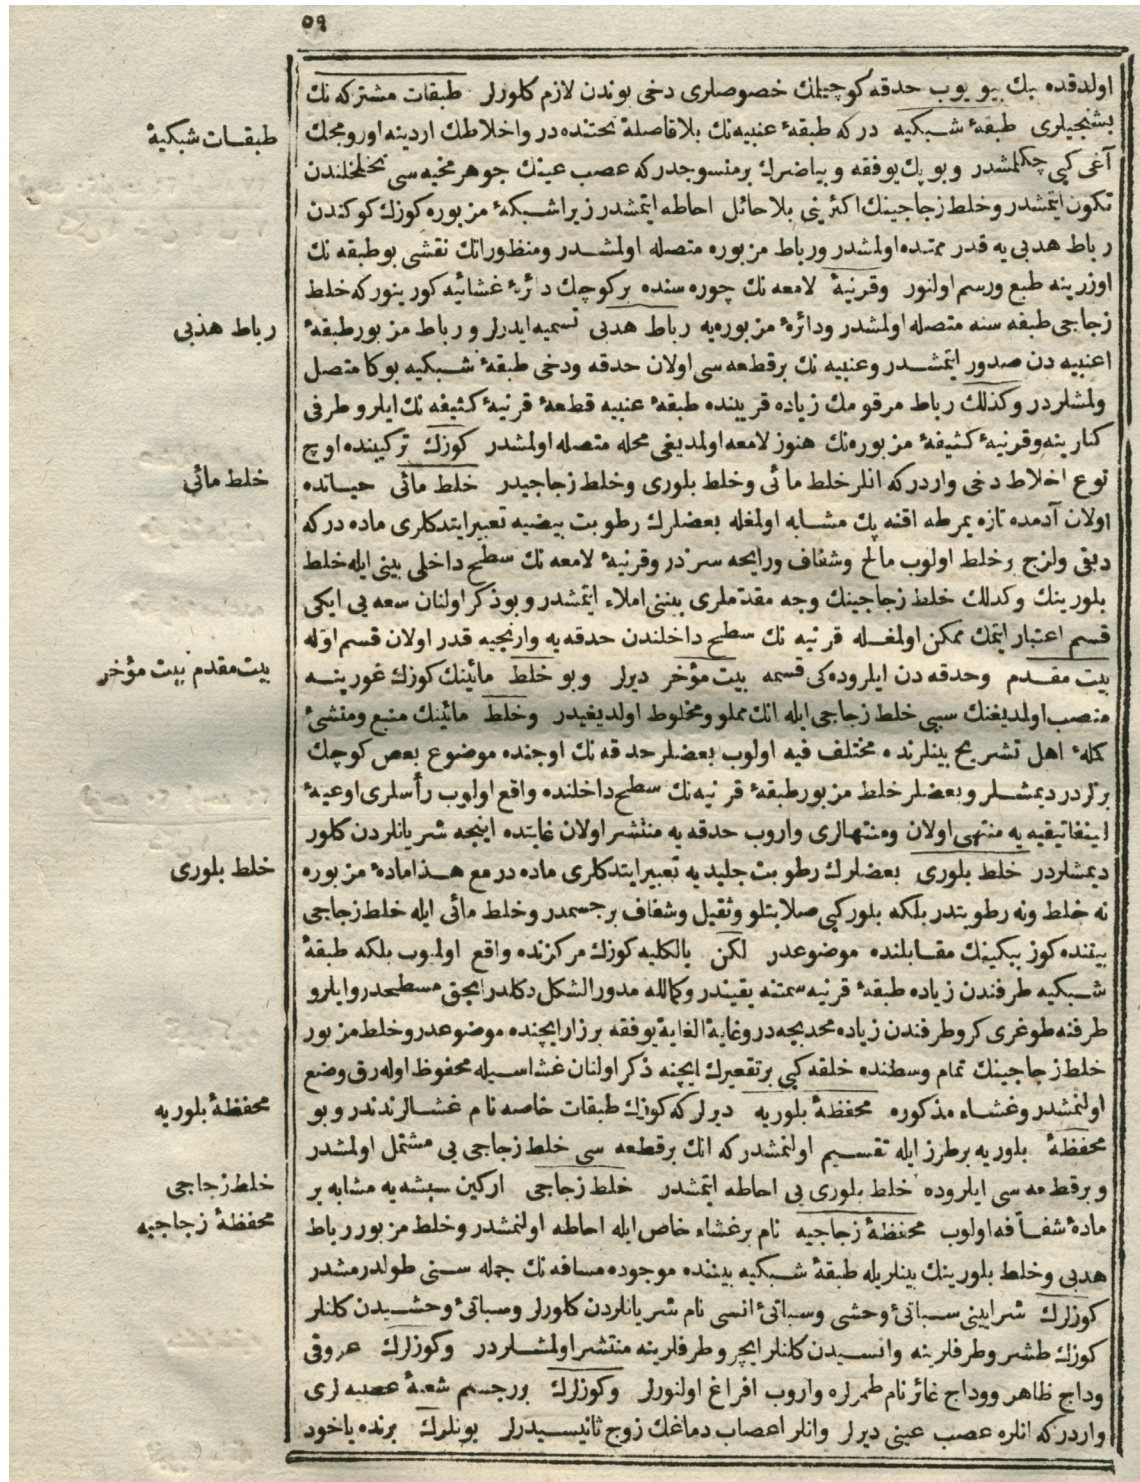 ٥٩
اولدقده پك بيويوب حدقه كوچيلمك خصوصلرى دخى بوندن لازم كلورلر طبقات مشتركه نك
بشنجيلرى طبقهٔ شبكيه دركه طبقهٔ عنبيه نك بلافاصله تحتنده در واخلاطك اردينه اورومجك
طبقات شبكيهٔ
آغى كبى چكلمشدر وبو پك يوفقه وبياضرك برمنسوجدركه عصب عينك جوهر مخيه سى تخلخلندن
تكون ايتمشدر وخلط زجاجينك اكثرينى بلاحائل احاطه ايتمشدر زيرا شبكهٔ مزبوره كوزك كوكندن
رباط هدبى يه قدر ممتده اولمشدر ورباط مزبوره متصله اولمشدر ومنظوراتك نقشى بوطبقه نك
اوزرينه طبع ورسم اولنور وقرنيهٔ لامعه نك چوره سنده بركوچك دائرهٔ غشائيه كورينوركه خلط
زجاجى طبقه سنه متصله اولمشدر ودائرهٔ مزبوره يه رباط هدبى تسميه ايدرلر ورباط مزبور طبقهٔ
رباط هذبى
اعنبيه دن صدور ايتمشدر وعنبيه نك برقطعه سى اولان حدقه ودخى طبقهٔ شبكيه بوكا متصل
ولمشلردر وكذلك رباط مرقومك زياده قربنده طبقهٔ عنبيه قطعهٔ قرنيهٔ كثيفه نك ايلرو طرفى
كنارينه وقرنيهٔ كثيفهٔ مزبوره نك هنوز لامعه اولمديغى محله متصله اولمشدر كوزك تركيبنده اوچ
نوع اخلاط دخى واردركه انلر خلط مائى وخلط بلورى وخلط زجاجيدر خلط مائى حياتده
خلط مائى
اولان آدمده تازه يمرطه اقنه پك مشابه اولمغله بعضلرك رطوبت بيضيه تعبير ايتدكلرى ماده دركه
دبقى ولزج وخلط اولوب مالح وشفاف ورايحه سزدر وقرنيهٔ لامعه نك سطح داخلى بينى ايله خلط
بلورينك وكذلك خلط زجاجينك وجه مقدملرى بيننى املاء ايتمشدر وبو ذكر اولنان سعه يى ايكى
قسم اعتبار ايتمك ممكن اولمغله قرنيه نك سطح داخلندن حدقه يه وارنجيه قدر اولان قسم اوله
بيت مقدم وحدقه دن ايلروده كى قسمه بيت مؤخر ديرلر وبو خلط مائينك كوزك غورينه
بيت مقدم بيت مؤخر
منصب اولديغنك سببى خلط زجاجى ايله انك مملو ومخلوط اولديغيدر وخلط مائينك منبع ومنشئ
كلهٔ اهل تشريح بينلرنده مختلف فيه اولوب بعضلر حدقه نك اوجنده موضوع بعض كوچك
برلردر ديمشلر وبعضلر خلط مزبور طبقهٔ قرنيه نك سطح داخلنده واقع اولوب رأسلرى اوعيهٔ
لينفاتيقيه يه منتهى اولان ومنتهالرى واروب حدقه يه منتشر اولان غايتده اينجه شريانلردن كلور
ديمشلردر خلط بلورى بعضلرك رطوبت جليديه تعبير ايتدكلرى ماده در مع هذا مادهٔ مزبوره
خلط بلورى
نه خلط ونه رطوبتدر بلكه بلور كبى صلابتلو وثقيل وشفاف برجسمدر وخلط مائى ايله خلط زجاجى
بيننده كوز ببكينك مقابلنده موضوعدر لكن بالكليه كوزك مركزنده واقع اولميوب بلكه طبقهٔ
شبكيه طرفندن زياده طبقهٔ قرنيه سمتنه يقيندر وكالله مدور الشكل دكلدر انجق مسطحدر وايلرو
طرفنه طوغرى كرو طرفندن زياده محدبجه در وغاية الغايه يوفقه برزار ايچنده موضوعدر وخلط مزبور
خلط زجاجينك تمام وسطنده خلقه كبى برتقعيرك ايچنه ذكر اولنان غشاسيله محفوظ اوله رق وضع
اولنمشدر وغشاء مذكوره محفظهٔ بلوريه ديرلركه كوزك طبقات خاصه نام غشالرندندر وبو
محفظهٔ بلوريه
محفظهٔ بلوريه برطرز ايله تقسيم اولنمشدركه انك برقطعه سى خلط زجاجى يى مشتمل اولمشدر
وبرقطعه سى ايلروده خلط بلورى يى احاطه ايتمشدر خلط زجاجى اركين سيشه يه مشابه بر
خلط زجاجى
مادهٔ شفافه اولوب محفظهٔ زجاجيه نام برغشاء خاص ايله احاطه اولنمشدر وخلط مزبور رباط
محفظهٔ زجاجيه
هدبى وخلط بلورينك بينلريله طبقهٔ شبكيه بيننده موجوده مسافه نك جمله سنى طولدرمشدر
كوزلرك شرايينى سباتئ وحشى وسباتئ انسى نام شريانلردن كلورلر وسباتئ وحشيدن كلنلر
كوزك طشرو طرفلرينه وانسيدن كلنلر ايچرو طرفلرينه منتشر اولمشلردر وكوزلرك عروقى
وداج ظاهر ووداج غائر نام طمرلره واروب افراغ اولنورلر وكوزلرك بررجسيم شعبهٔ عصبيه لرى
واردركه انلره عصب عينى ديرلر وانلر اعصاب دماغك زوج ثانيسيدرلر بونلرك برنده ياخود